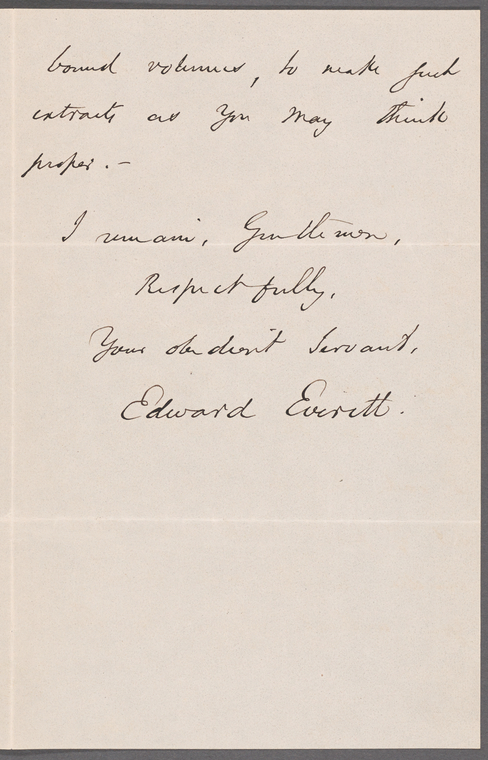 bound volumes, to make such
extracts as you may think
proper. –
I remain, Gentlemen,
Respectfully,
Your obedient Servant,
Edward Everett.